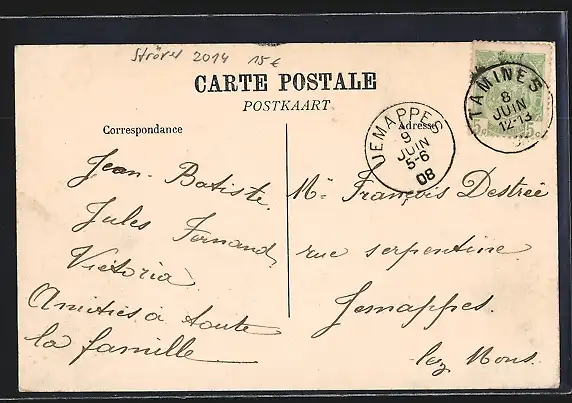 Ströver 2014 15€
CARTE POSTALE
POSTKAART
Correspondance
Adresse
TAMINES
8
JUIN
12-13
5c 5c
JEMAPPES
9
JUIN
5-6
08
Jean-Batiste
Jules Fernand
Victoria
Amitiés à toute
la famille
Mr François Destrée
rue serpentine
Jemappes.
lez Mons.